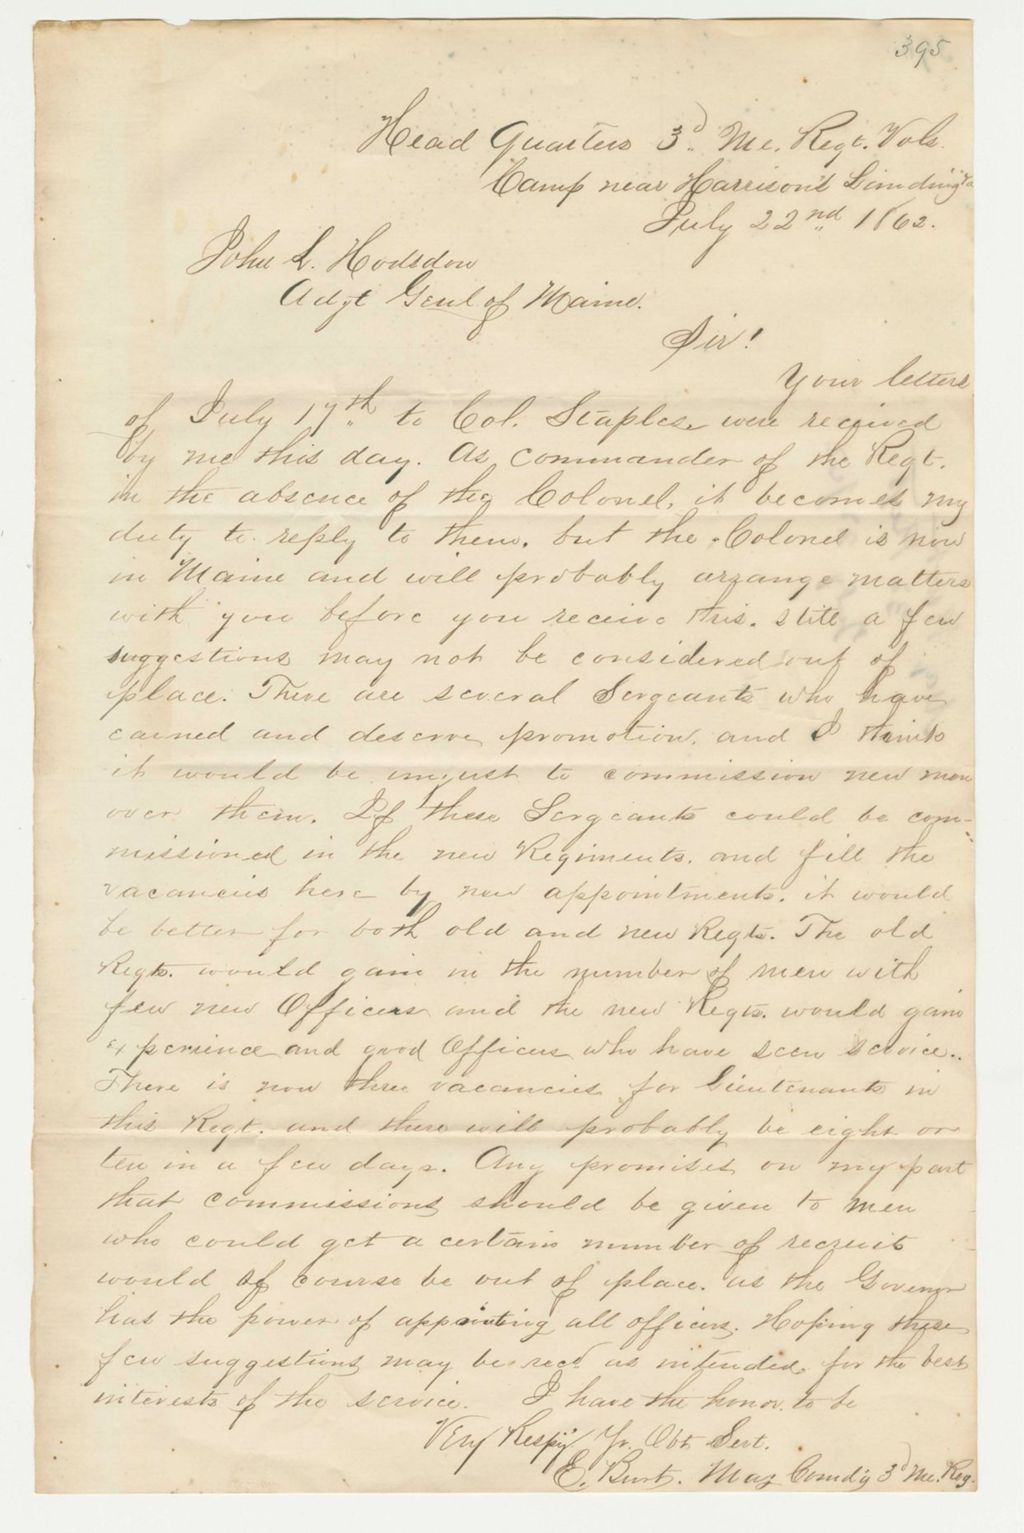 395
Head Quarters 3d Me. Regt. Vols.
Camp near Harrison's Landing Va
July 22nd 1862.
John L. Hodsdon
Adjt Genl of Maine.
Sir!
Your letters
of July 17th to Col. Staples were received
by me this day. As commander of the Regt.
in the absence of the Colonel, it becomes my
duty to reply to them, but the Colonel is now
in Maine and will probably arrange matters
with you before you receive this. Still a few
suggestions may not be considered out of
place. There are several Sergeants who have
earned and deserve promotion, and I think
it would be unjust to commission new men
over them. If these Sergeants could be com-
missioned in the new Regiments, and fill the
vacancies here by new appointments, it would
be better for both old and new Regts. The old
Regts. would gain in the number of men with
few new Officers and the new Regts. would gain
experience and good Officers who have seen service.
There is now three vacancies for Lieutenants in
this Regt. and there will probably be eight or
ten in a few days. Any promises on my part
that commissions should be given to men
who could get a certain number of recruits
would of course be out of place, as the Govenor
has the power of appointing all officers. Hoping these
few suggestions may be recd as intended, for the best
interests of the service. I have the honor to be
Very Respy Yr. Obt. Sevt.
E. Burt. Maj Comd'g 3d Me. Reg.